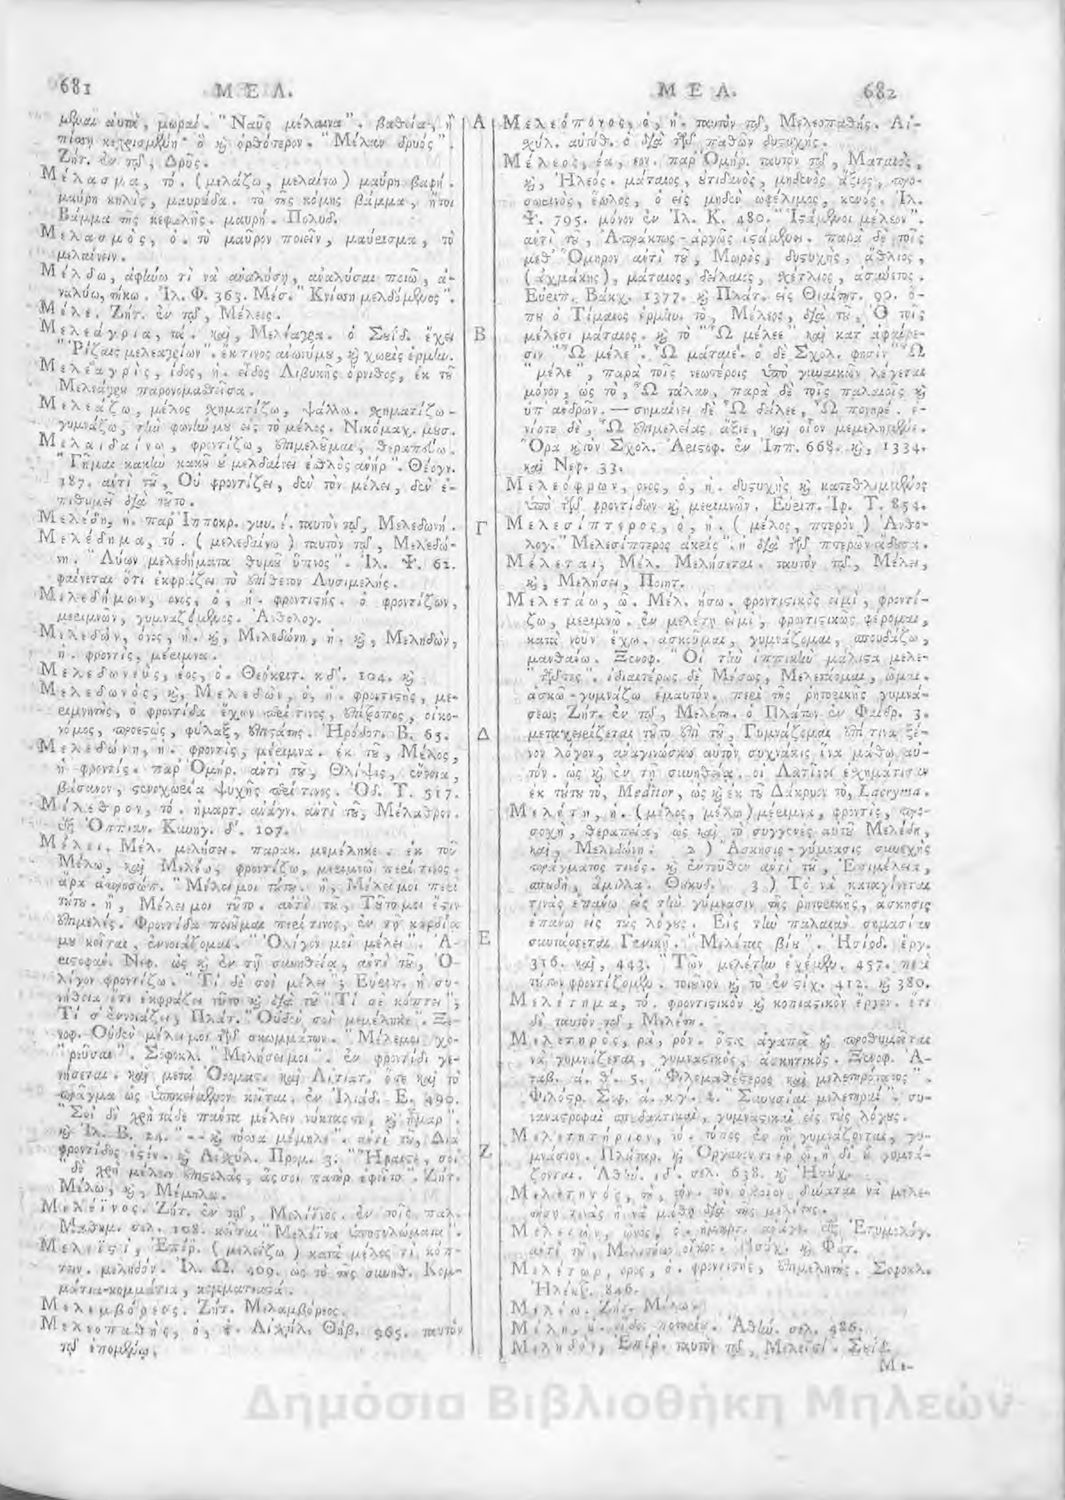 681 ΜΕΛ.
αὐτὰ, μωραί. "Ναῦς μέλαινα". βαθεῖα, ἢ
ὃ καὶ ὀρθότερον. "Μέλαν δρυὸς".
Ζήτ. ἐν τῷ, Δρῦς.
Μέλασμα, τό. (μελάζω, μελαίνω) μαύρη βαφή.
μαύρη κηλὶς, μαυράδα. τὸ τῆς κόμης βάμμα, ἤτοι
Βάμμα τῆς κεφαλῆς. μαυρή. Πολυδ.
Μελασμὸς, ὁ. τὸ μαῦρον ποιεῖν, μαύρισμα, τὸ
μελαίνειν.
Μέλδω, ἀφίνω τὶ νὰ ἀναλύσῃ, ἀναλύσαι ποιῶ, ἀ-
ναλύω, τήκω. Ἰλ. Φ. 363. Μέσ. "Κνίσῃ μελδόμενος".
Μέλε. Ζήτ. ἐν τῷ, Μέλεος.
Μελεάγρια, τά. καὶ, Μελέαγρα. ὁ Σουΐδ. ἔχει
"Ῥίζαις μελεαγρίων". ἔκ τινος αἰωνύμου, καὶ χωρὶς ἑρμην.
Μελεαγρὶς, ίδος, ἡ. εἶδος Λιβυκῆς ὄρνιθος, ἐκ τοῦ
Μελεάγρου παρονομασθεῖσα.
Μελεάζω, μέλος σχηματίζω, ψάλλω. σχηματίζω-
γυμνάζω, τὴν φωνήν μου εἰς τὸ μέλος. Νικόμαχ. μουσ.
Μελαιδαίνω, φροντίζω, ἐπιμελοῦμαι, θεραπεύω.
"Γῆμαι κακὴν κακοῦ οὐ μελδαίνει ἐσθλὸς ἀνήρ". Θέογν.
187. αὐτὶ τοῦ, Οὐ φροντίζει, δὲν τὸν μέλει, δὲν ἐ-
πιθυμεῖ διὰ τοῦτο.
Μελέδη, ἡ. παρ' Ἱπποκρ. γυν. έ. ταυτὸν τῷ, Μελεδωνή.
Μελέδημα, τό. (μελεδαίνω) ταυτὸν τῷ, Μελεδώ-
νη. "Λύων μελεδήματα θυμοῦ ὕπνος". Ἰλ. Ψ. 62.
φαίνεται ὅτι ἐκφράζει τὸ ἐπίθετον Λυσιμελής.
Μελεδήμων, ονος, ὁ, ἡ. φροντιστής. ὁ φροντίζων,
μεριμνῶν, γυμναζόμενος. Ἀνθολογ.
Μελεδὼν, όνος, ἡ. καὶ, Μελεδώνη, ἡ. καὶ, Μεληδὼν,
ἡ. φροντὶς, μέριμνα.
Μελεδωνεὺς, έος, ὁ. Θεόκριτ. κδ'. 104. καὶ
Μελεδωνὸς, καὶ, Μελεδὼν, ὁ, ἡ. φροντιστὴς, με-
ριμνητὴς, ὁ φροντίδα ἔχων περί τινος, ἐπίτροπος, οἰκο-
νόμος, προεστὼς, φύλαξ, ἐπιστάτης. Ἡρόδοτ. Β. 65.
Μελεδώνη, ἡ. φροντὶς, μέριμνα. ἐκ τοῦ, Μέλος,
ἡ φροντίς. παρ' Ὁμήρ. αὐτὶ τοῦ, Θλίψις, ἔννοια,
βάσανον, στενοχωρία ψυχῆς περί τινος. Ὀδ. Τ. 517.
Μέλεθρον, τό. ἡμαρτ. ἀνάγν. αὐτὶ τοῦ, Μέλαθρον.
Ὀππιαν. Κυνηγ. δ'. 107.
Μέλει, Μέλ. μελήσει. παρακ. μεμέληκε. ἐκ τοῦ
Μέλω, καὶ Μελέω, φροντίζω, μεριμνῶ περί τινος.
ἄρα ἀπροσώπ. "Μέλει μοι τοῦτο. ἢ, Μέλει μοι περὶ
τούτου. ἢ, Μέλει μοι τούτου. αὐτὶ τοῦ, Τοῦτό μοι ἐστὶν
ἐπιμελὲς. Φροντίδα ποιοῦμαι περί τινος, ἐν τῇ καρδίᾳ
μου κεῖται, ἐννοιάζομαι. "Ὀλίγον μοι μέλει". Ἀ-
ριστοφαν. Νεφ. ὡς καὶ ἐν τῇ συνηθείᾳ, αὐτὶ τοῦ, Ὀ-
λίγον φροντίζω. "Τί δέ σοι μέλει"; Εὐριπ. ἡ συ-
νήθεια ἔτι ἐκφράζει τοῦτο καὶ διὰ τοῦ "Τί σὲ κόπτει";
Τί σ' ἐννοιάζει; Πλάτ. "Οὐδέν σοι μεμέληκε". Ξε-
νοφ. Οὐδὲν μέλει μοι τῶν σκωμμάτων. "Μέλεμοι χο-
ρεῦσαι". Σοφοκλ. "Μελήσει μοι". ἐν φροντίδι γε-
νήσεται. καὶ μετὰ Ὀνομας. καὶ Αἰτιατ. ὅτε καὶ τὸ
πρᾶγμα ὡς ὑποκείμενον κεῖται. ἐν Ἰλιάδ. Ε. 490.
"Σοὶ δὲ χρὴ τάδε πάντα μέλειν νύκτας τε, καὶ ἦμαρ".
καὶ Ἰλ. Β. 24. "-- καὶ τόσσα μέμηλε". αὐτὶ τοῦ, Διὰ
φροντίδος ἐστίν. καὶ Αἰσχύλ. Προμ. 3. "Ἥφαιστε, σοὶ
δὲ χρὴ μέλειν ἐπιστολὰς, ἅς σοι πατὴρ ἐφεῖτο". Ζήτ.
Μέλω, καὶ, Μέμηλα.
Μελεΐνος. Ζήτ. ἐν τῷ, Μελίϊνος. ἐν τοῖς παλ.
Μαθημ. σελ. 108. κεῖται "Μελεΐνα ὑποστυλώματα".
Μελεϊστὶ, Ἐπίρ. (μελεΐζω) κατὰ μέλος τὶ κόπ-
τειν. μεληδόν. Ἰλ. Ω. 409. ὡς τὸ τῆς συνηθ. Κομ-
μάτια-κομμάτια, κομματιαστά.
Μελεμβόρεος. Ζήτ. Μελαμβόρειος.
Μελεοπαθὴς, ὁ, ἡ. Αἰσχύλ. Θήβ. 965. ταυτὸν
τῷ ἑπομένῳ.
ΜΕΛ. 682
Α
Β
Γ
Δ
Ε
Ζ
Μελεόπονος, ὁ, ἡ. ταυτὸν τῷ, Μελεοπαθής. Αἰ-
σχύλ. αὐτόθ. ὁ διὰ τῶν παθῶν δυστυχής.
Μέλεος, έα, εον. παρ' Ὁμήρ. ταυτὸν τῷ, Ματαιος,
καὶ, Ἠλεός. μάταιος, οὐτιδανὸς, μηδενὸς ἄξιος,
ἕωλος, ὁ εἰς μηδὲν ὠφέλιμος, κενός. Ἰλ.
Ψ. 795. μόνον ἐν Ἰλ. Κ. 480. "Ἱστάμενοι μέλεον".
αὐτὶ τοῦ, Ἀπράκτως-ἀργῶς ἱστάμενοι. παρὰ δὲ τοῖς
μεθ' Ὅμηρον αὐτὶ τοῦ, Μωρὸς, δυστυχὴς, ἄθλιος,
(ἀχμάκης), μάταιος, δείλαιος, σχέτλιος, ἀσύνετος.
Εὐριπ. Βάκχ. 1377. καὶ Πλάτ. εἰς Θεαίτητ. 90. ὅ-
που ὁ Τίμαιος ἑρμην. τὸ, Μέλεος, διὰ τοῦ, Ὁ τοῖς
μέλεσι μάταιος. καὶ τὸ "Ὦ μέλεε" καὶ κατ' ἀφαίρε-
σιν "Ὦ μέλε". "Ὦ μάταιε. ὁ δὲ Σχολ. φησὶν "Ὦ
"μέλε", παρὰ τοῖς νεωτέροις ὑπὸ γυναικῶν λέγεται
μόνον, ὡς τὸ, Ὦ τάλαν, παρὰ δὲ τοῖς παλαιοῖς καὶ
ὑπ' ἀνδρῶν. — σημαίνει δὲ Ὦ δείλεε, Ὦ πονηρέ. ἐ-
νίοτε δὲ, Ὦ ἐπιμελείας ἄξιε, καὶ οἷον μεμελημένε.
Ὅρα καὶ τὸν Σχολ. Ἀριστοφ. ἐν Ἱππ. 668. καὶ, 1334.
καὶ Νεφ. 33.
Μελεόφρων, ονος, ὁ, ἡ. δυστυχὴς καὶ κατεθλιμμένος
ὑπὸ τῶν φροντίδων καὶ μεριμνῶν. Εὐριπ. Ἰφ. Τ. 854.
Μελεσίπτερος, ὁ, ἡ. (μέλος, πτερὸν) Ἀνθο-
λογ. "Μελεσίπτερος ἀκρίς". ἡ διὰ τῶν πτερῶν ᾄδουσα.
Μέλεται, Μέλ. Μελήσεται. ταυτὸν τῷ, Μέλει,
καὶ, Μελήσει, Ποιητ.
Μελετάω, ῶ. Μέλ. ήσω. φροντιστικὸς εἰμὶ, φροντί-
ζω, μεριμνῶ. ἐν μελέτῃ εἰμὶ, φροντιστικῶς φέρομαι,
κατὰ νοῦν ἔχω. ἀσκοῦμαι, γυμνάζομαι, σπουδάζω,
μανθάνω. Ξενοφ. "Οἱ τὴν ἱππικὴν μάλιστα μελε-
τῶντες". ἰδιαιτέρως δὲ Μέσως, Μελετάομαι, ῶμαι.
ἀσκῶ-γυμνάζω ἐμαυτόν. περὶ τῆς ῥητορικῆς γυμνά-
σεως Ζήτ. ἐν τῷ, Μελέτη. ὁ Πλάτων ἐν Φαίδρ. 3.
μεταχειρίζεται τοῦτο ἐπὶ τοῦ, Γυμνάζομαι ἐπί τινα ξέ-
νον λόγον, ἀναγινώσκω αὐτὸν συχνάκις ἵνα μάθω αὐ-
τόν. ὡς καὶ ἐν τῇ συνηθείᾳ. οἱ Λατῖνοι ἐσχημάτισαν
ἐκ τούτου τὸ, Meditor, ὡς καὶ ἐκ τοῦ Δάκρυον τὸ, Lacryma.
Μελέτη, ἡ. (μέλος, μέλω) μέριμνα, φροντὶς, προ-
σοχὴ, θεραπεία, ὡς καὶ τὸ συγγενὲς αὐτοῦ Μελέδη,
καὶ, Μελεδώνη. 2) Ἄσκησις-γύμνασις συνεχὴς
πράγματος τινός. καὶ ἐντεῦθεν αὐτὶ τοῦ, Ἐπιμέλεια,
σπουδὴ, ἅμιλλα. Θουκυδ. 3) Τὸ νὰ καταγίνεται
τινὰς ἐπάνω εἰς τὴν γύμνασιν τῆς ῥητορικῆς, ἄσκησις
ἐπάνω εἰς τοὺς λόγους. Εἰς τὴν παλαιὰν σημασίαν
συντάσσεται Γενική. "Μελέτας βίου". Ἡσίοδ. ἔργ.
316. καὶ, 443. "Τῶν μελέτην ἐχέμεν. 457. περὶ
τούτων φροντίζομεν. τοιοῦτον καὶ τὸ ἐν στίχ. 412. καὶ 380.
Μελέτημα, τό. φροντιστικὸν καὶ κοπιαστικὸν ἔργον. ἔτι
δὲ ταυτὸν τῷ, Μελέτη.
Μελετηρὸς, ρὰ, ρόν. ὅστις ἀγαπᾷ καὶ προθυμεῖται
νὰ γυμνάζεται, γυμναστικὸς, ἀσκητικός. Ξενοφ. Ἀ-
ναβ. ά. θ'. 5. "Φιλομαθέστερος καὶ μελετηρότατος".
Φιλόστρ. Σοφ. ά. κγ'. 2. "Συνουσίαι μελετηραὶ". συ-
ναναστροφαὶ σπουδαστικαὶ, γυμναστικαὶ εἰς τοὺς λόγους.
Μελετητήριον, τό. τόπος ἐν ᾧ γυμνάζονται, γυ-
μνάσιον. Πλούταρ. καὶ Ὄργανον ἐν ᾧ, ἢ δι' οὗ γυμνά-
ζονται. Ἀθήν. ιδ'. σελ. 638. καὶ Ἡσύχ.
Μελετητὸς, τὴ, τόν. τὸν ὁποῖον δύναται νὰ μελε-
τήσῃ τινὰς ἢ νὰ μάθῃ διὰ τῆς μελέτης.
Μελετὼν, ῶνος, ὁ. ἡμαρτ. ἀνάγν. Ἐτυμολογ.
αὐτὶ τοῦ, Μελετῶν οἶκος. Ἡσύχ. καὶ Φωτ.
Μελέτωρ, ορος, ὁ. φροντιστὴς, ἐπιμελητής. Σοφοκλ.
Ἠλέκτ. 846.
Μελέω. Ζήτ. Μέλω.
Μέλη, ἡ. εἶδος ποτηρίου. Ἀθήν. σελ. 486.
Μεληδὸν, Ἐπίρ. ταυτὸν τῷ, Μελεϊστί. Σουΐδ.
Με-
Δημόσια Βιβλιοθήκη Μηλεών